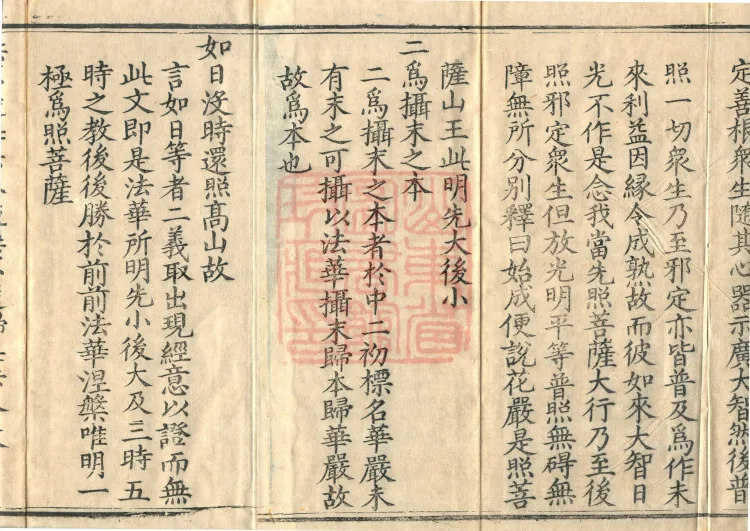 定善根衆生隨其心器示廣大智然後普
照一切衆生乃至邪定亦皆普及爲作未
來利益因緣令成熟故而彼如來大智日
光不作是念我當先照菩薩大行乃至後
照邪定衆生但放光明平等普照無碍無
障無所分別釋曰始成便說花嚴是照菩
薩山王此明先大後小
二爲攝末之本
二爲攝末之本者於中二初標名華嚴未
有末之可攝以法華攝末歸本歸華嚴故
故爲本也
如日沒時還照髙山故
言如日等者二義取出現經意以證而無
此文即是法華所明先小後大及三時五
時之教後後勝於前前法華涅槃唯明一
極爲照菩薩